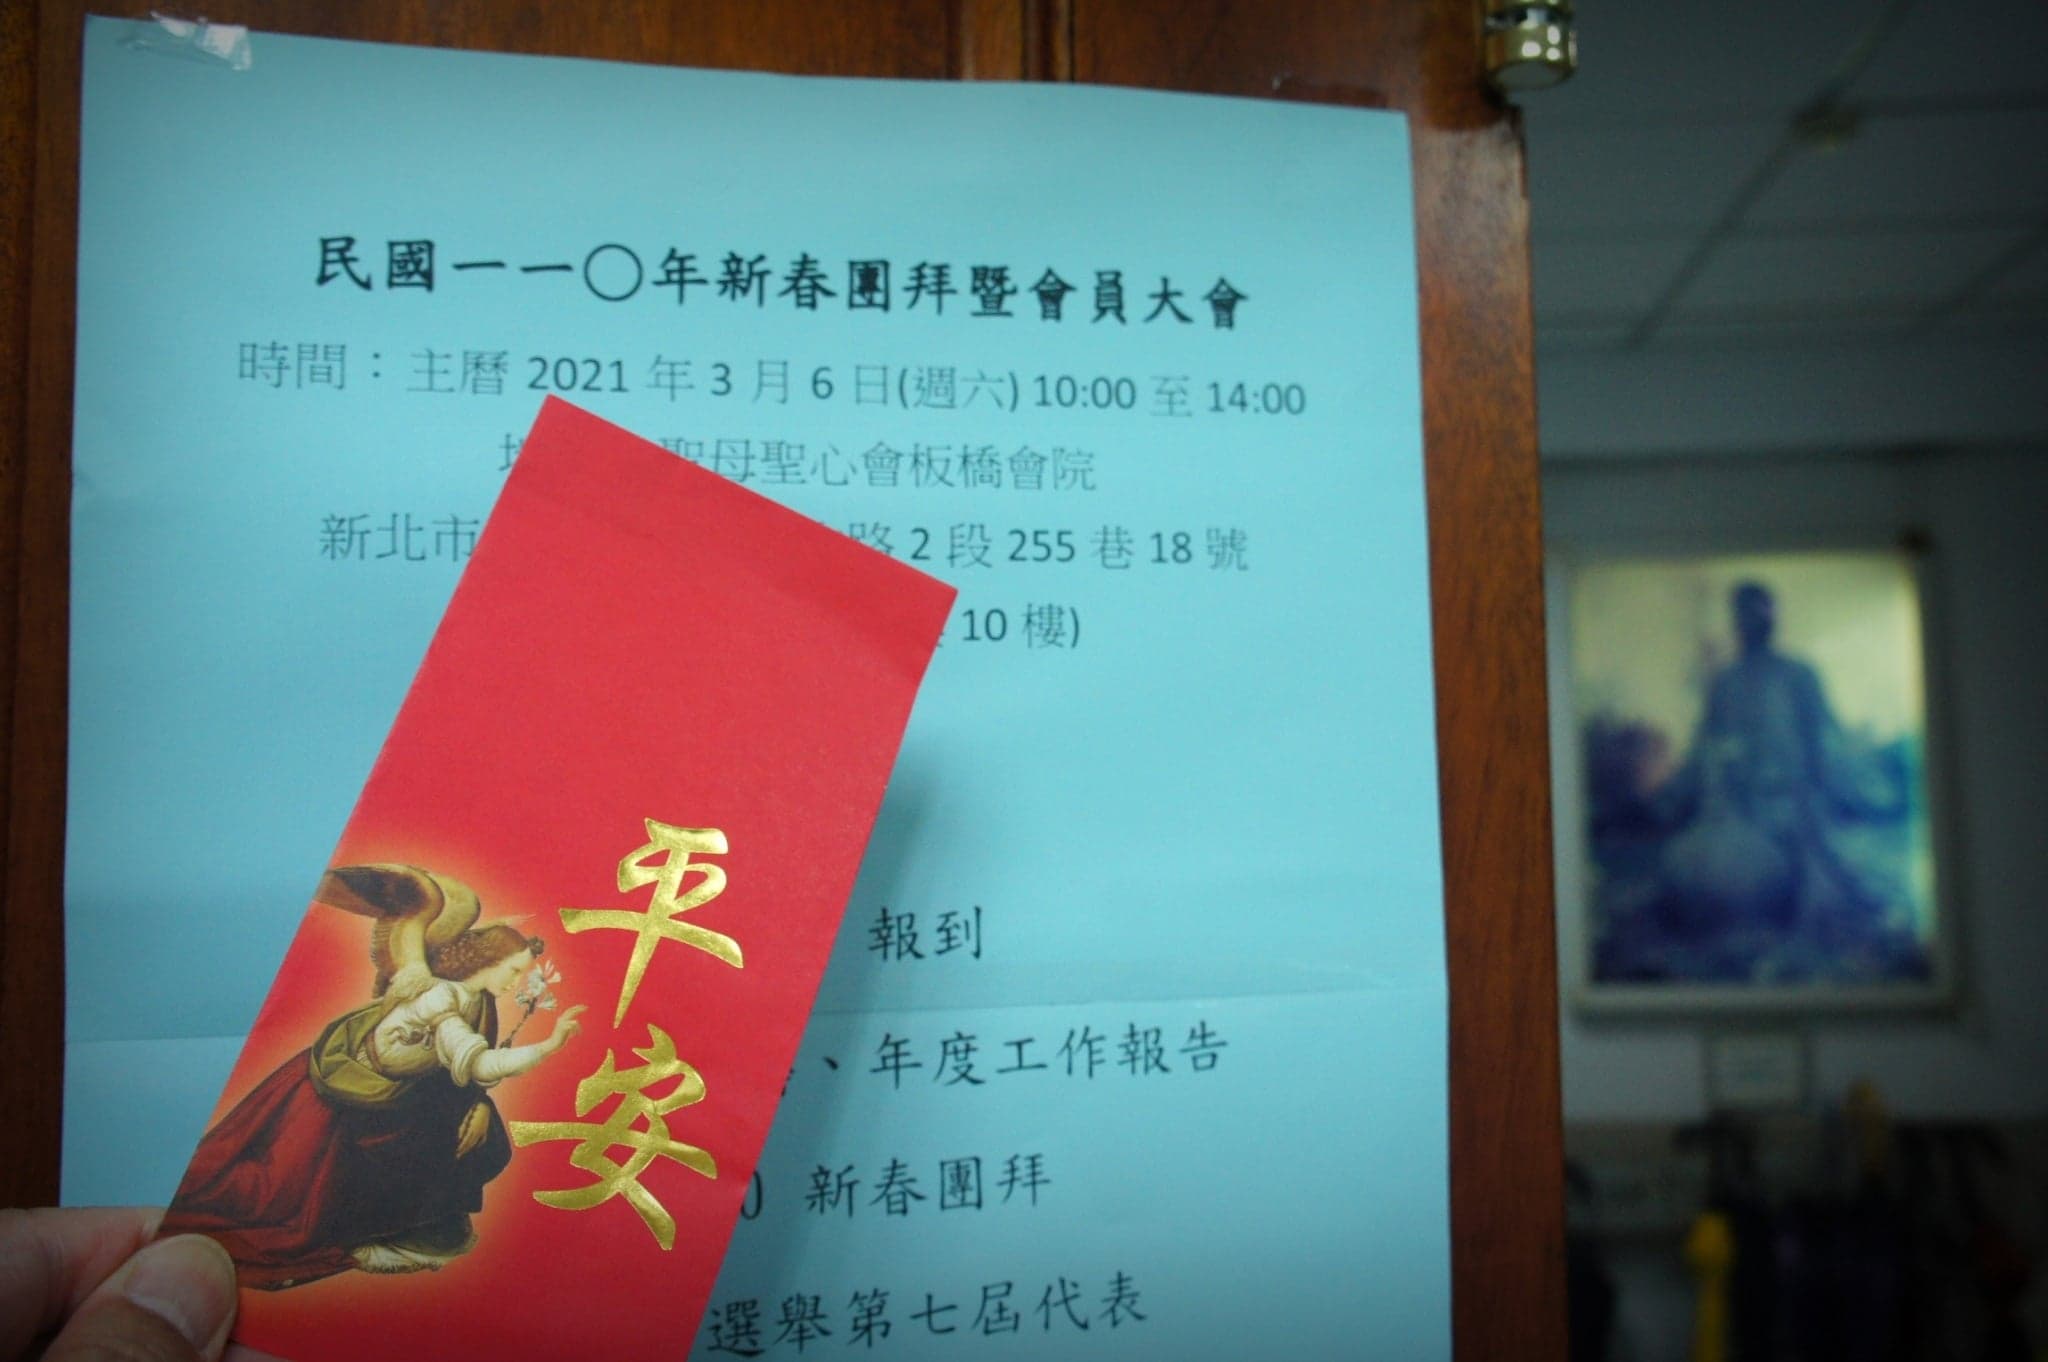 民國一一〇年新春團拜暨會員大會
時間：主曆 2021 年 3 月 6 日(週六) 10:00 至 14:00
聖母聖心會板橋會院
新北市 路 2 段 255 巷 18 號
10 樓)
報到
、年度工作報告
0 新春團拜
選舉第七屆代表
平安